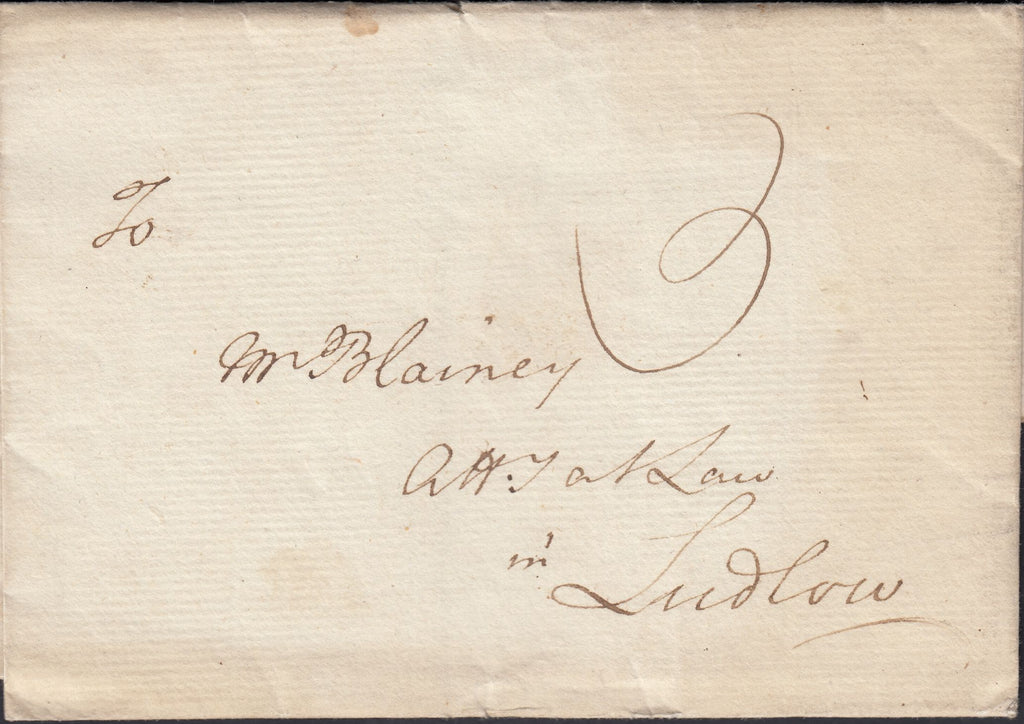 3
To
Mr Blainey
Atty at Law
in
Ludlow